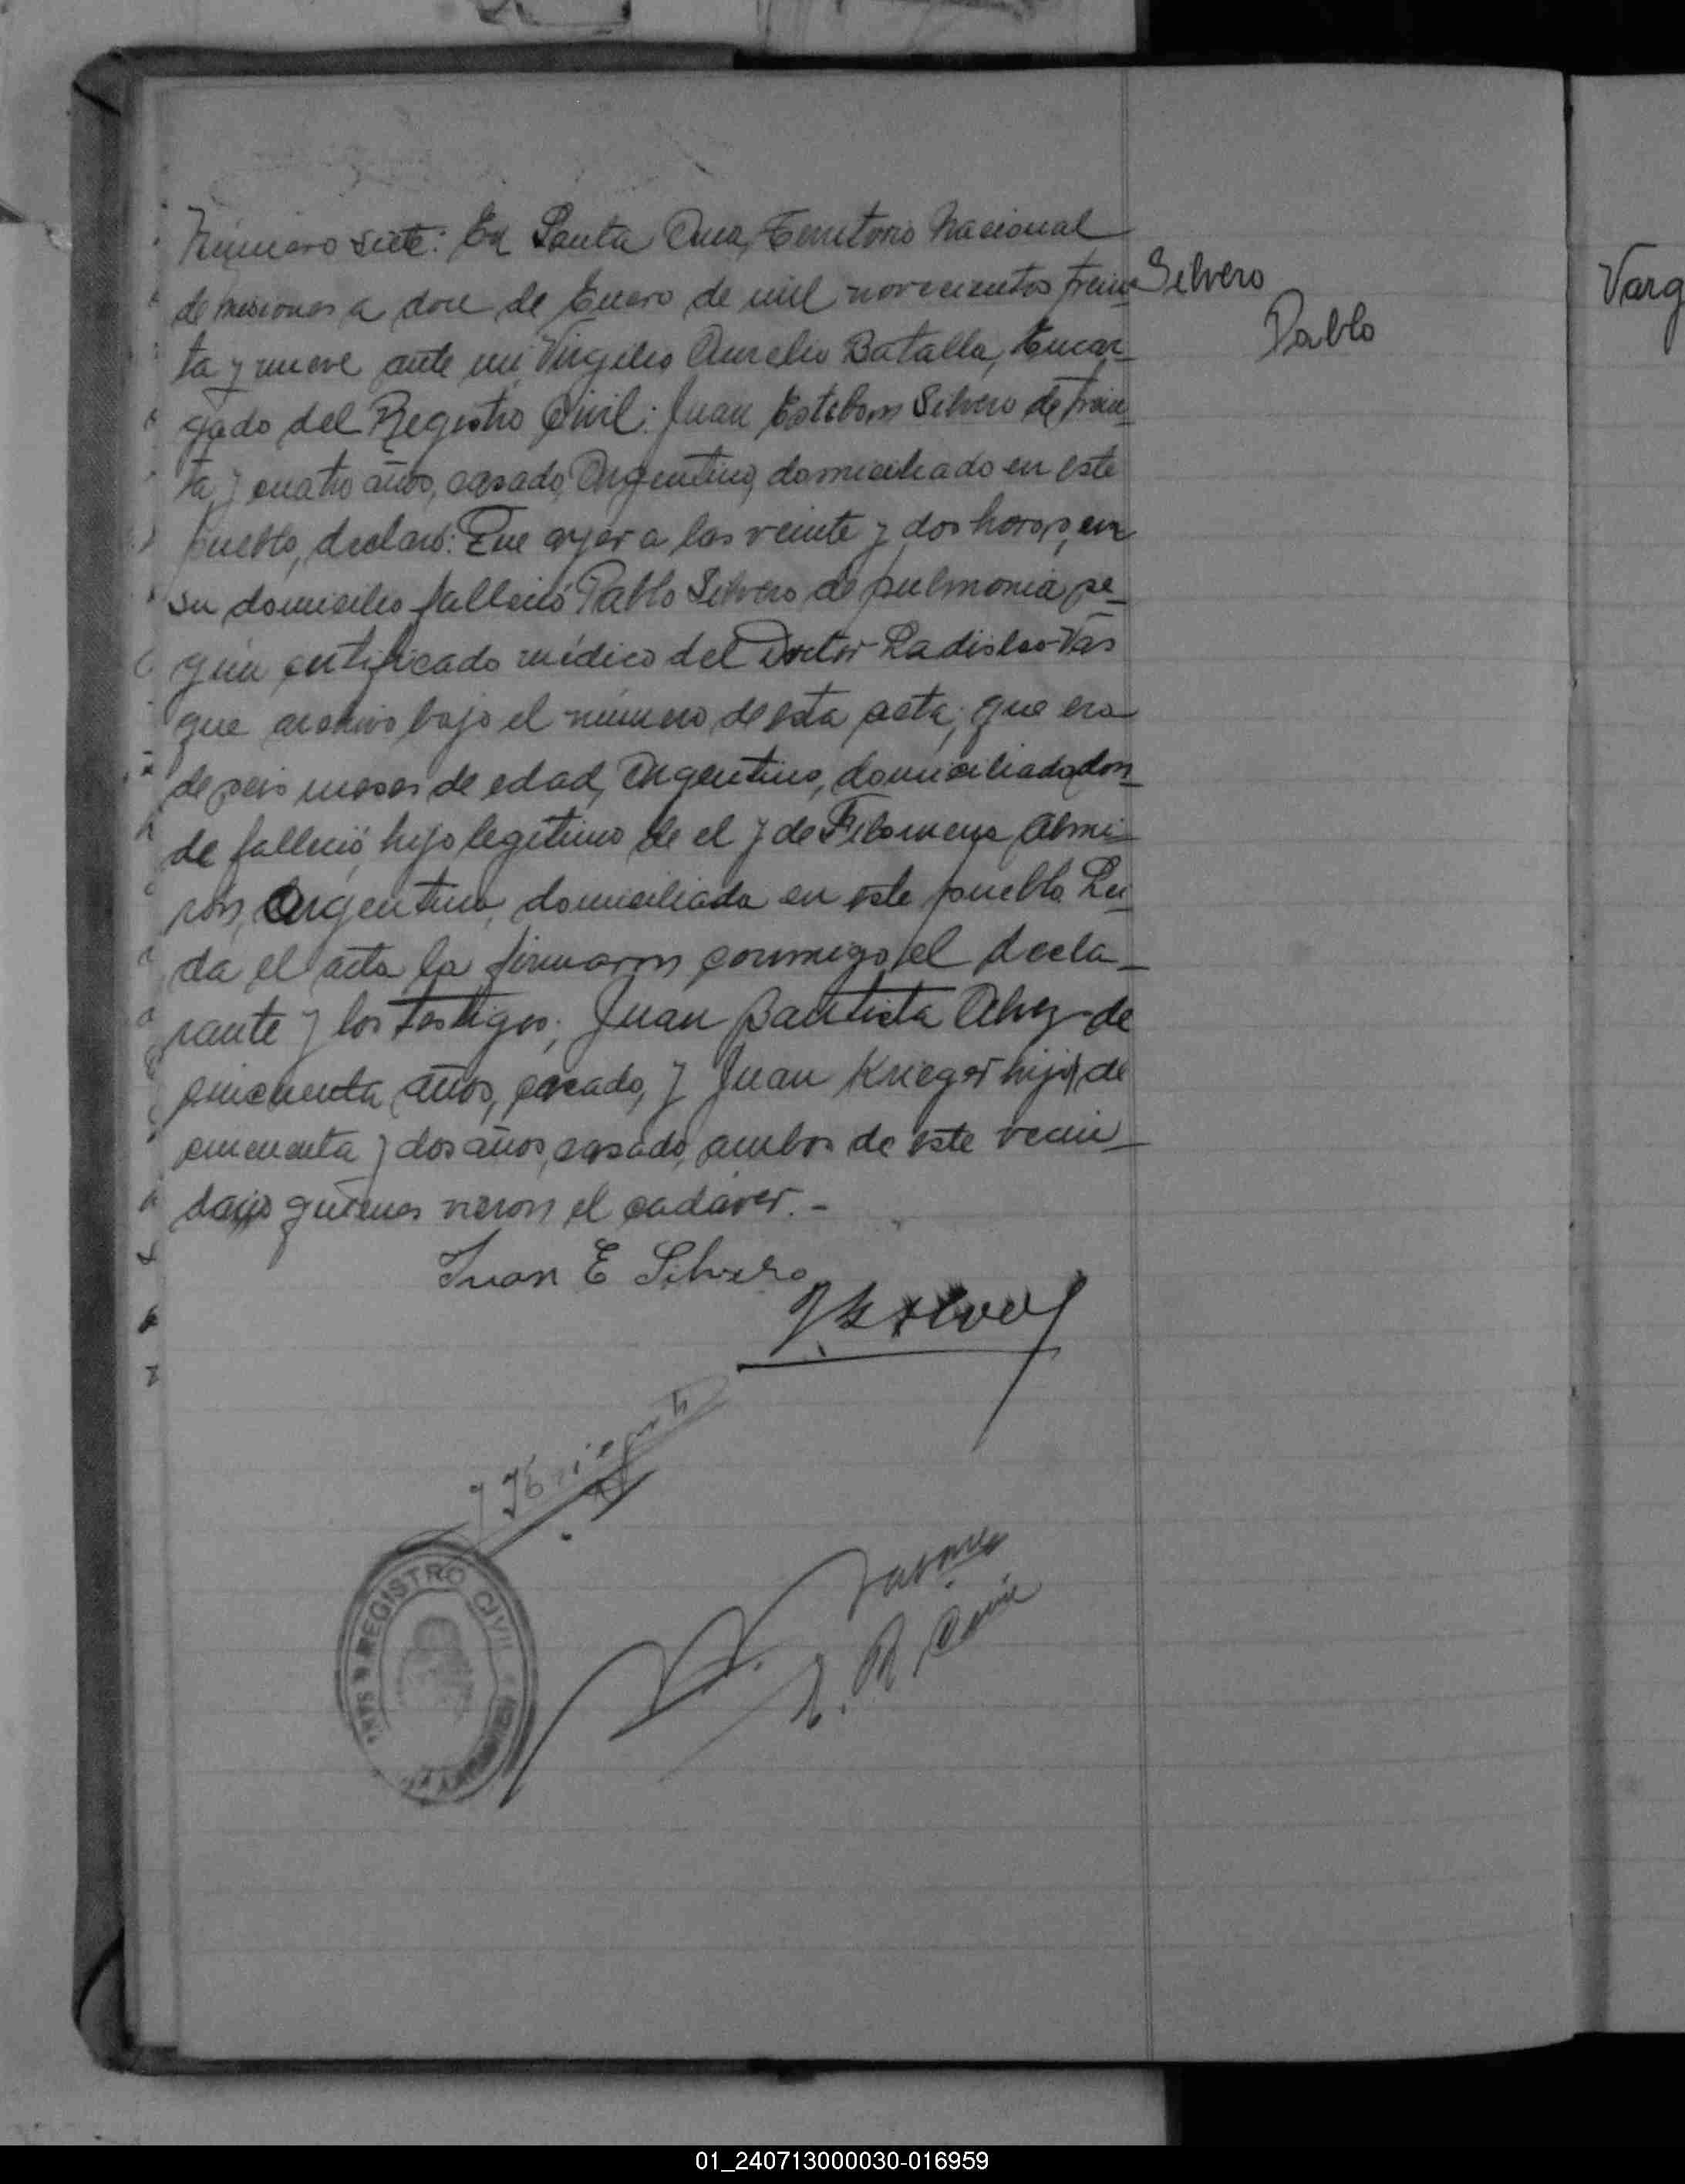 Número siete: En Santa Ana, Territorio Nacional
de Misiones a doce de Enero de mil novecientos trein-
ta y nueve ante mi, Virgilio Aurelio Batalla, Encar-
gado del Registro Civil: Juan Esteban Silvero de trein-
ta y cuatro años, casado, Argentino, domiciliado en este
pueblo, declaró: Que ayer a las veinte y dos horas, en
su domicilio falleció Pablo Silvero de pulmonia se-
gún certificado médico del Doctor Ladislao Vas
que archivo bajo el número de esta acta; que era
de seis meses de edad, Argentino, domiciliado don-
de falleció, hijo legitimo de el y de Filomena Almi-
rón, Argentina, domiciliada en este pueblo. Lei-
da el acta la firmaron conmigo, el decla-
rante y los testigos; Juan Bautista Alvez de
cincuenta años, casado, y Juan Krieger hijo, de
cincuenta y dos años, casado, ambos de este vecin-
dario quienes vieron el cadáver.-
Silvero
Pablo
Varg
Juan E Silvero
REGISTRO CIVIL
01_240713000030-016959